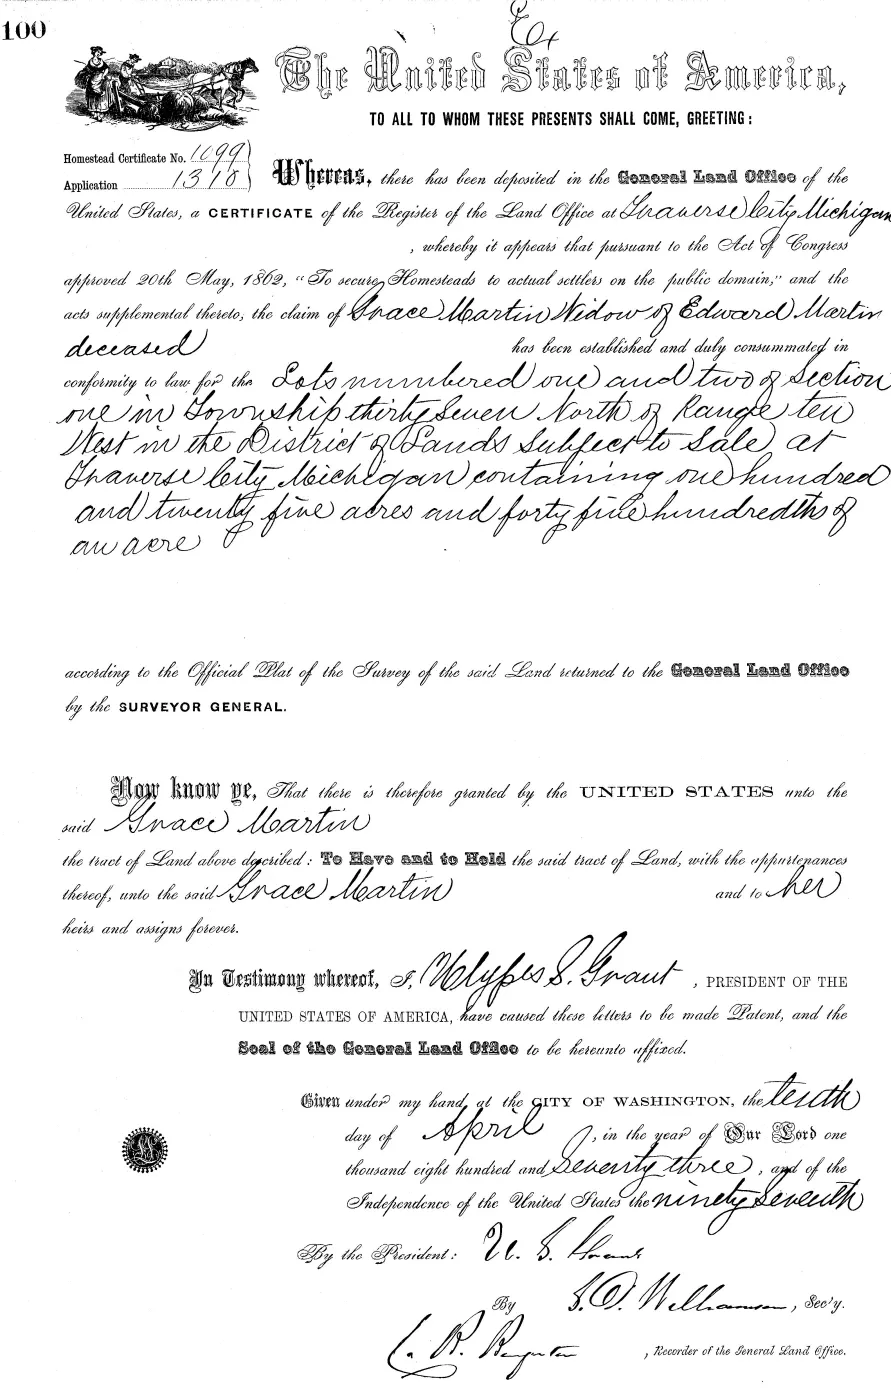 100
Ex
The United States of America,
TO ALL TO WHOM THESE PRESENTS SHALL COME, GREETING:
Homestead Certificate No. 1099
Application 1318
Whereas, there has been deposited in the General Land Office of the
United States, a CERTIFICATE of the Register of the Land Office at Traverse City Michigan
, whereby it appears that pursuant to the Act of Congress
approved 20th May, 1862, “To secure Homesteads to actual settlers on the public domain,” and the
acts supplemental thereto, the claim of Grace Martin Widow of Edward Martin
deceased has been established and duly consummated in
conformity to law for the Lots numbered one and two of Section
one in Township thirty Seven North of Range ten
West in the District of Lands Subject to Sale at
Traverse City Michigan containing one hundred
and twenty five acres and forty five hundredths of
an acre
according to the Official Plat of the Survey of the said Land returned to the General Land Office
by the SURVEYOR GENERAL.
Now know ye, That there is therefore granted by the UNITED STATES unto the
said Grace Martin
the tract of Land above described: To Have and to Hold the said tract of Land, with the appurtenances
thereof, unto the said Grace Martin and to her
heirs and assigns forever.
In Testimony whereof, I, Ulysses S. Grant, PRESIDENT OF THE
UNITED STATES OF AMERICA, have caused these letters to be made Patent, and the
Seal of the General Land Office to be hereunto affixed.
Given under my hand, at the CITY OF WASHINGTON, the tenth
day of April, in the year of Our Lord one
thousand eight hundred and Seventy three, and of the
Independence of the United States the ninety Seventh
By the President: U. S. Grant
By S. D. Williamson, Sec'y.
C. R. , Recorder of the General Land Office.